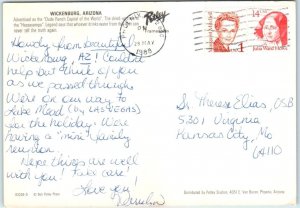 WICKENBURG, ARIZONA
Advertised as the "Dude Ranch Capital of the World". The
"Hassayampa" Legend says that whoever drinks water from the river can
never tell the truth again.
Petley
PM
29 MAY
1988
USA
1
USA
14
Julia Ward Howe
Howdy from beautiful
Wickenburg, AZ! Couldn't
help but think of you
as we passed through.
We're on our way to
Lake Mead (by LAS VEGAS)
for the holiday. We're
having a "mini" family
reunion.
Hope things are well
with you! Take care!
Love you,
Sr. Therese Elias, OSB
5301 Virginia
Kansas City, Mo
64110
Distributed by Petley Studios, 4051 E. Van Buren, Phoenix, Arizona